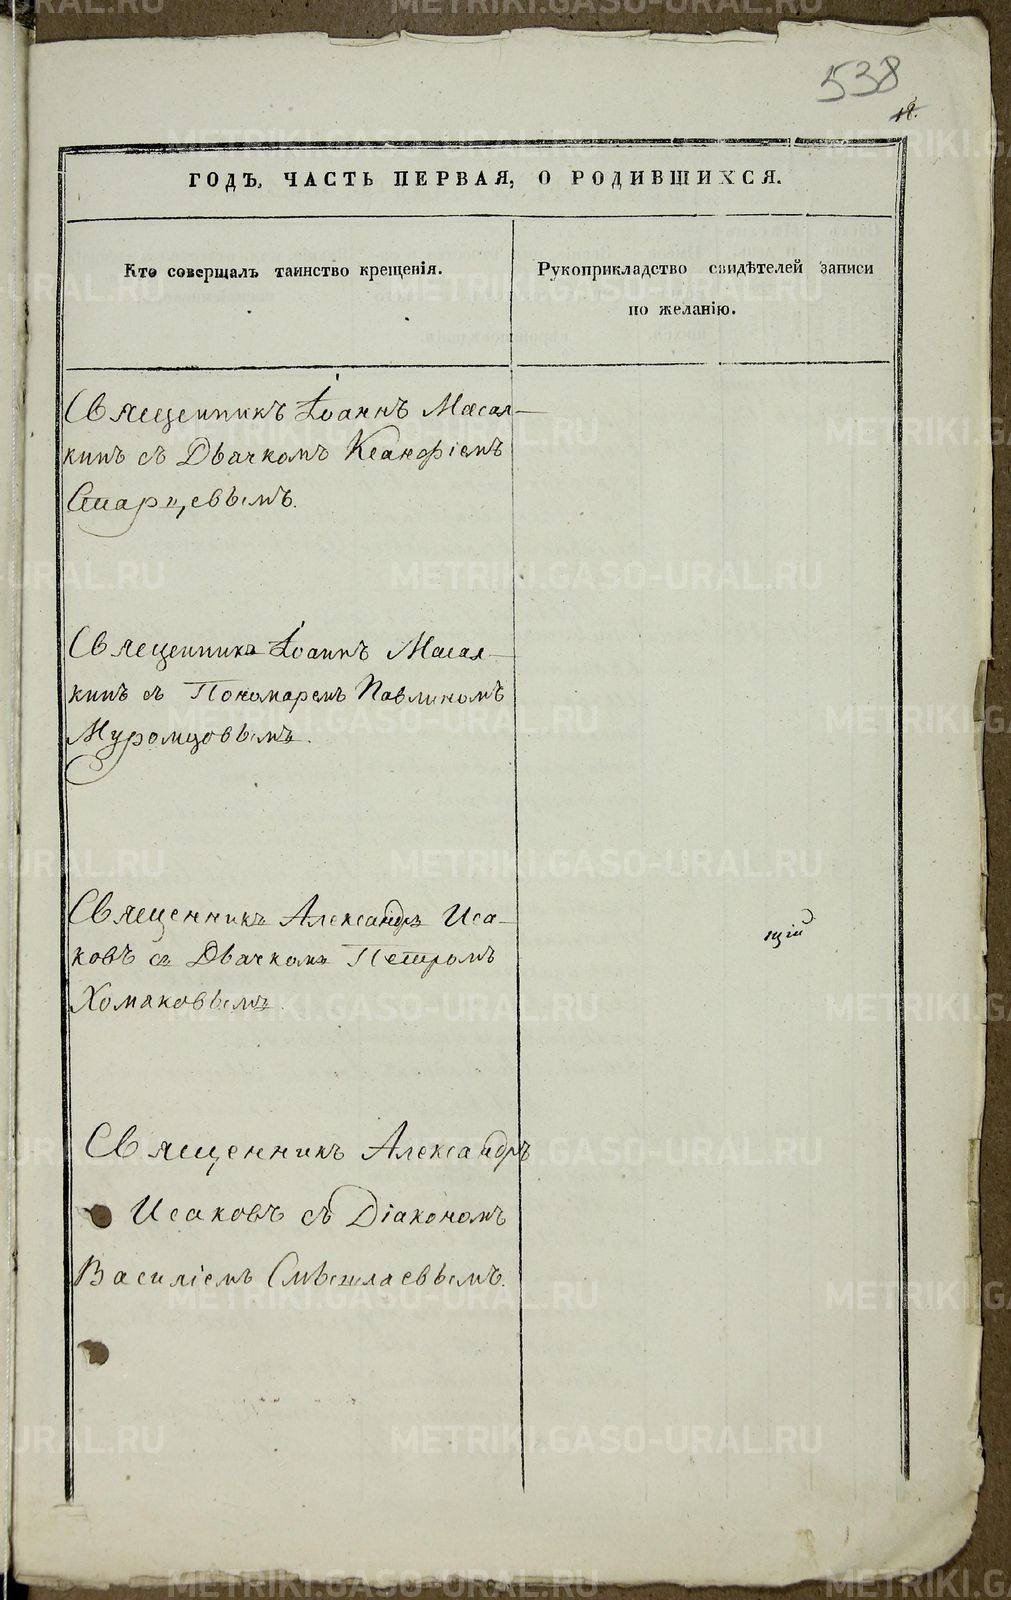 538
18.
ГОДЪ, ЧАСТЬ ПЕРВАЯ, О РОДИВШИХСЯ.
Кто совершалъ таинство крещенія.
Рукоприкладство свидѣтелей записи
по желанію.
Священникъ Іоаннъ Масал-
кинъ съ Дьячкомъ Ксанфіемъ
Старцевымъ.
Священникъ Іоаннъ Масал-
кинъ съ Пономаремъ Павлиномъ
Муромцовымъ.
Священникъ Александръ Иса-
ковъ съ Дьячкомъ Петромъ
Хомяковымъ.
щій
Священникъ Александръ
Исаковъ съ Діакономъ
Василіемъ
METRIKI.GASO-URAL.RU